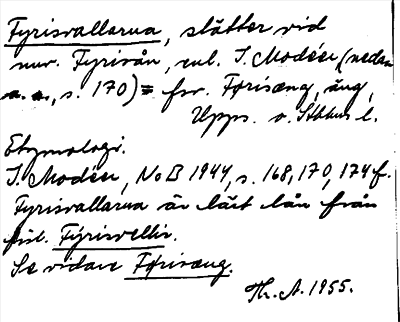 Fyrisvallarna, slätter vid
nuv. Fyrisån, enl. I. Modéer (nedan
a. a., s. 170) = fsv. Førisæng, äng,
Upps. o. Sthlms l.
Etymologi.
I. Modéer, NoB 1944, s. 168, 170, 174 f.
Fyrisvallarna är lärt lån från
fisl. Fýrisvellir.
Se vidare Førisæng.
Th. A. 1955.